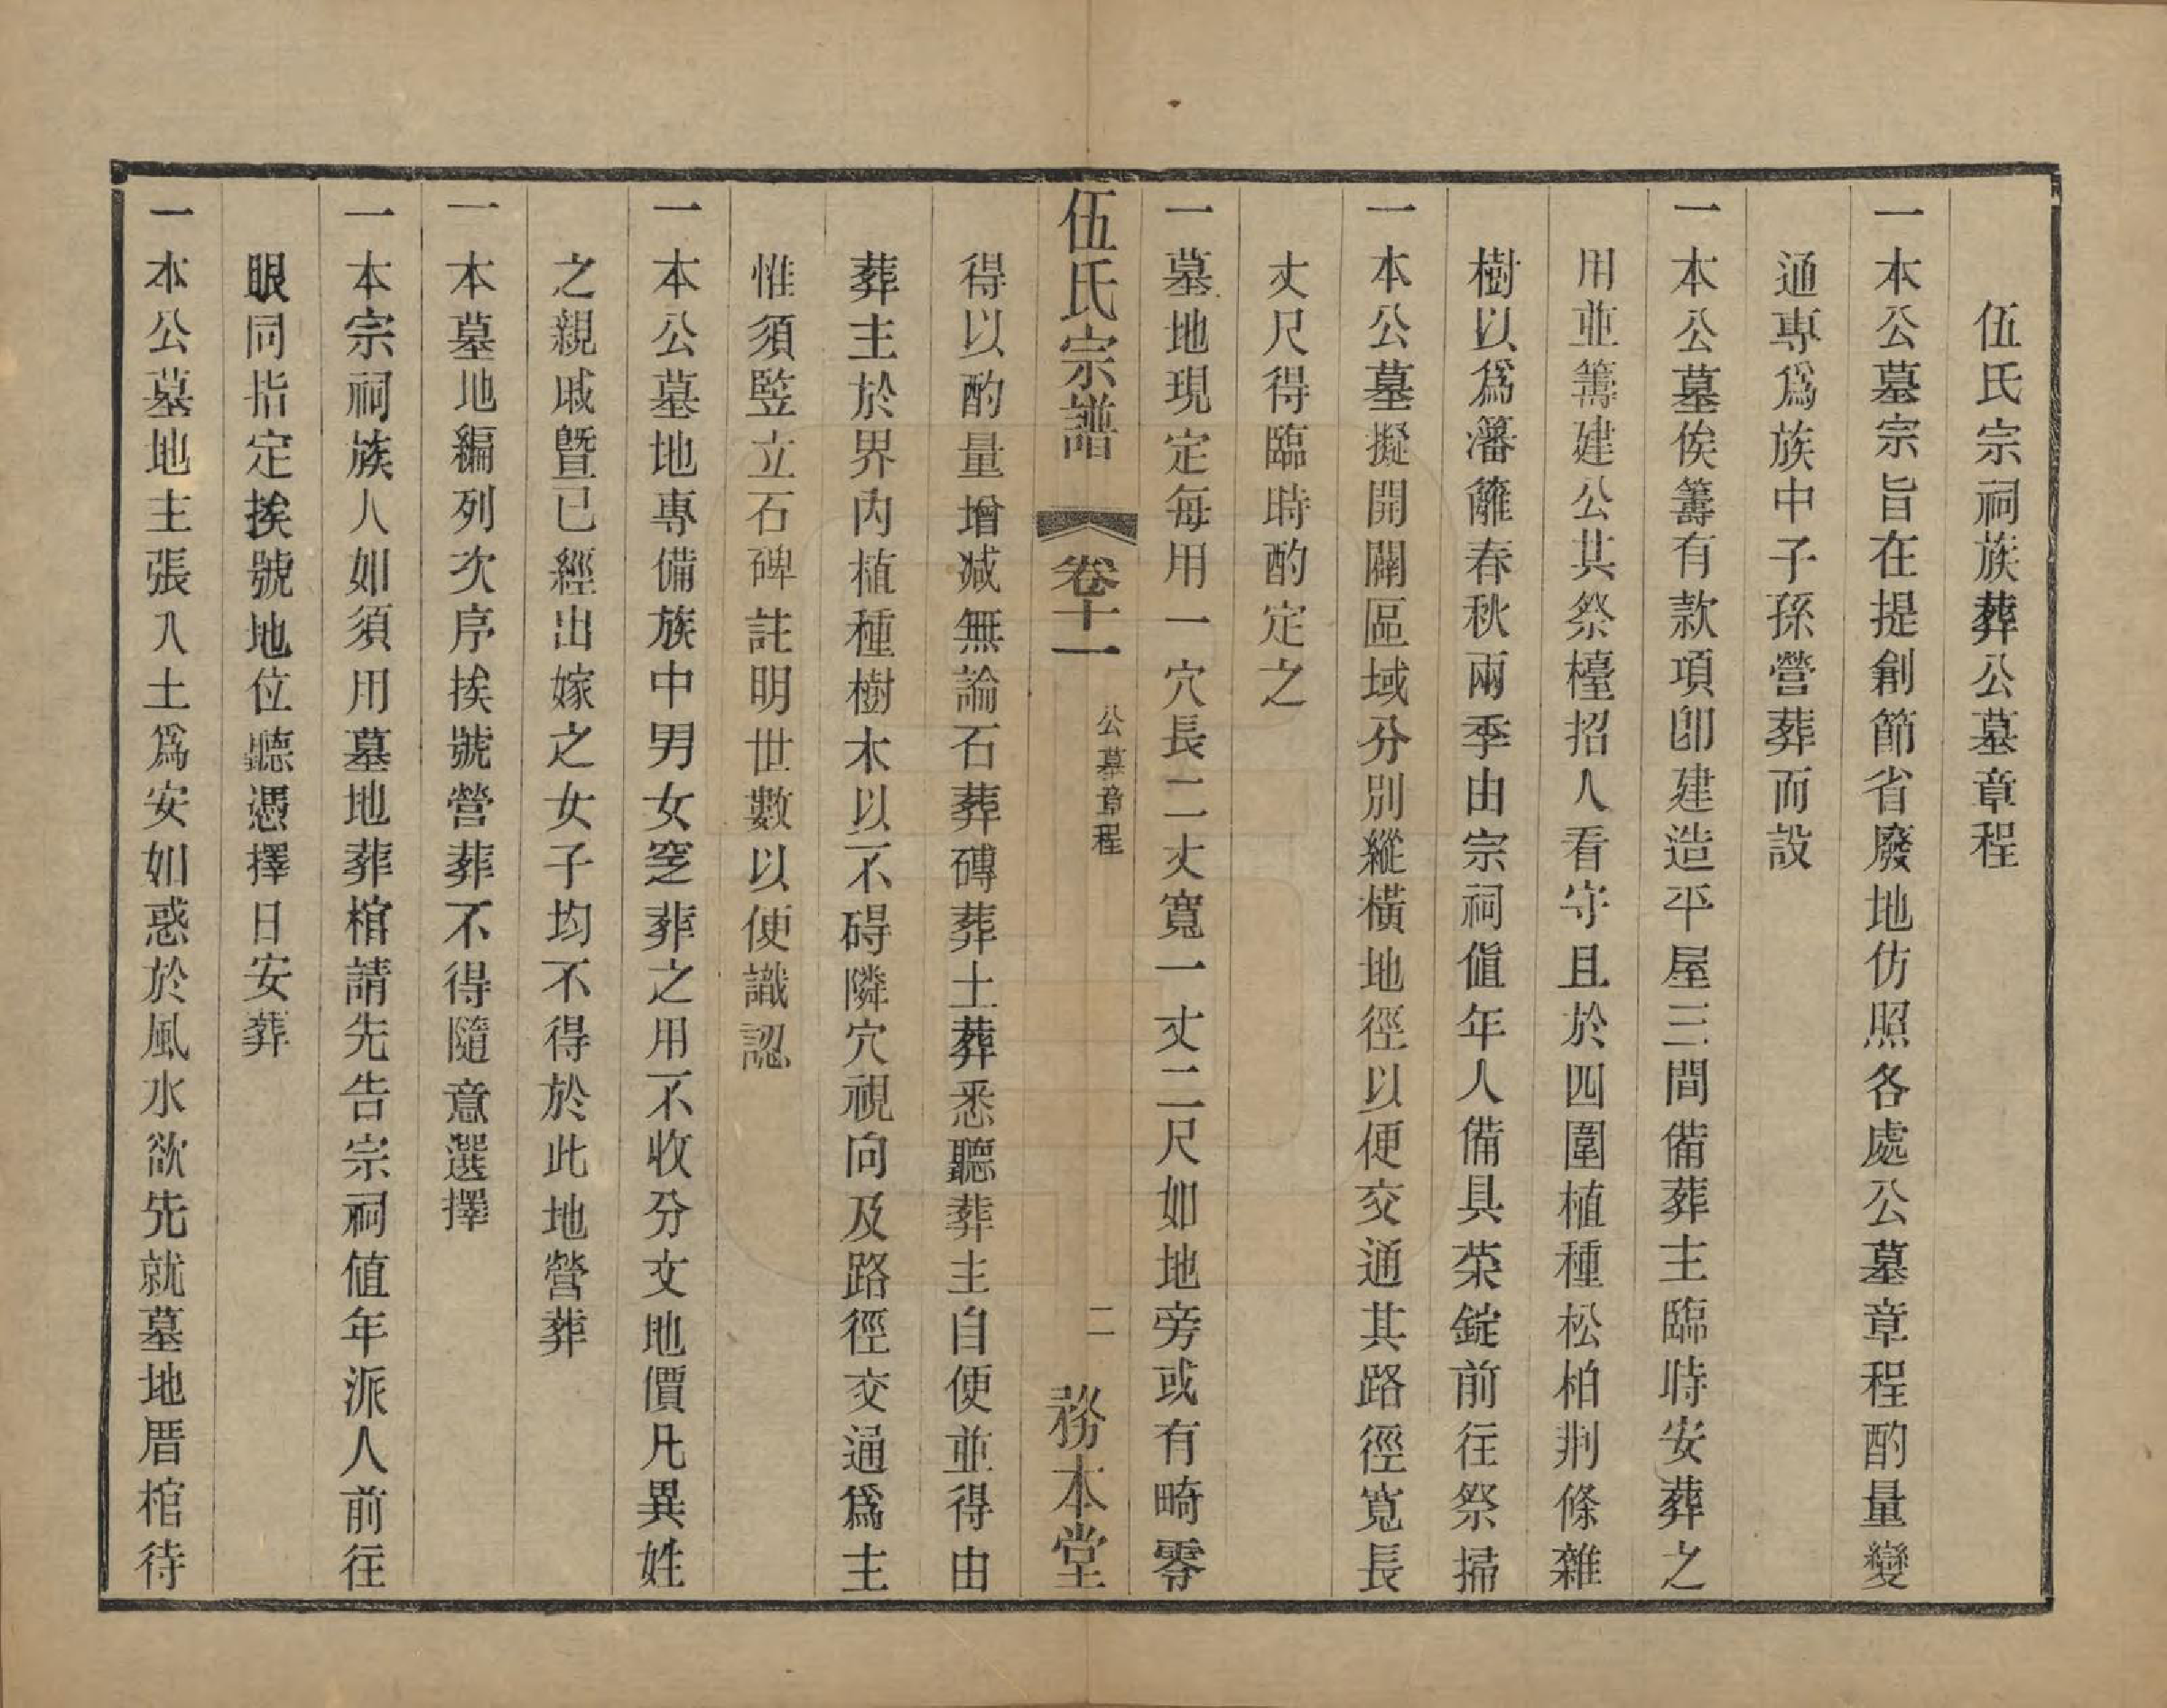 伍氏宗祠族葬公墓章程
一本公墓宗旨在提創節省廢地仿照各處公墓章程酌量變
通專爲族中子孫營葬而設
一本公墓俟籌有款項卽建造平屋三間備葬主臨時安葬之
用並籌建公共祭檯招人看守且於四圍植種松柏荆條雜
樹以爲籓籬春秋兩季由宗祠値年人備具菜錠前往祭掃
一本公墓擬開闢區域分別縱橫地徑以便交通其路徑寬長
丈尺得臨時酌定之
一墓地現定每用一穴長二丈寬一丈二尺如地旁或有畸零
伍氏宗譜 卷十一 公墓章程 二 務本堂
得以酌量增減無論石葬磚葬土葬悉聽葬主自便並得由
葬主於界內植種樹木以不碍隣穴視向及路徑交通爲主
惟須竪立石碑註明世數以便識認
一本公墓地專備族中男女窆葬之用不收分文地價凡異姓
之親戚曁已經出嫁之女子均不得於此地營葬
一本墓地編列次序挨號營葬不得隨意選擇
一本宗祠族人如須用墓地葬棺請先告宗祠値年派人前往
眼同指定挨號地位聽憑擇日安葬
一本公墓地主張入土爲安如惑於風水欲先就墓地厝棺待